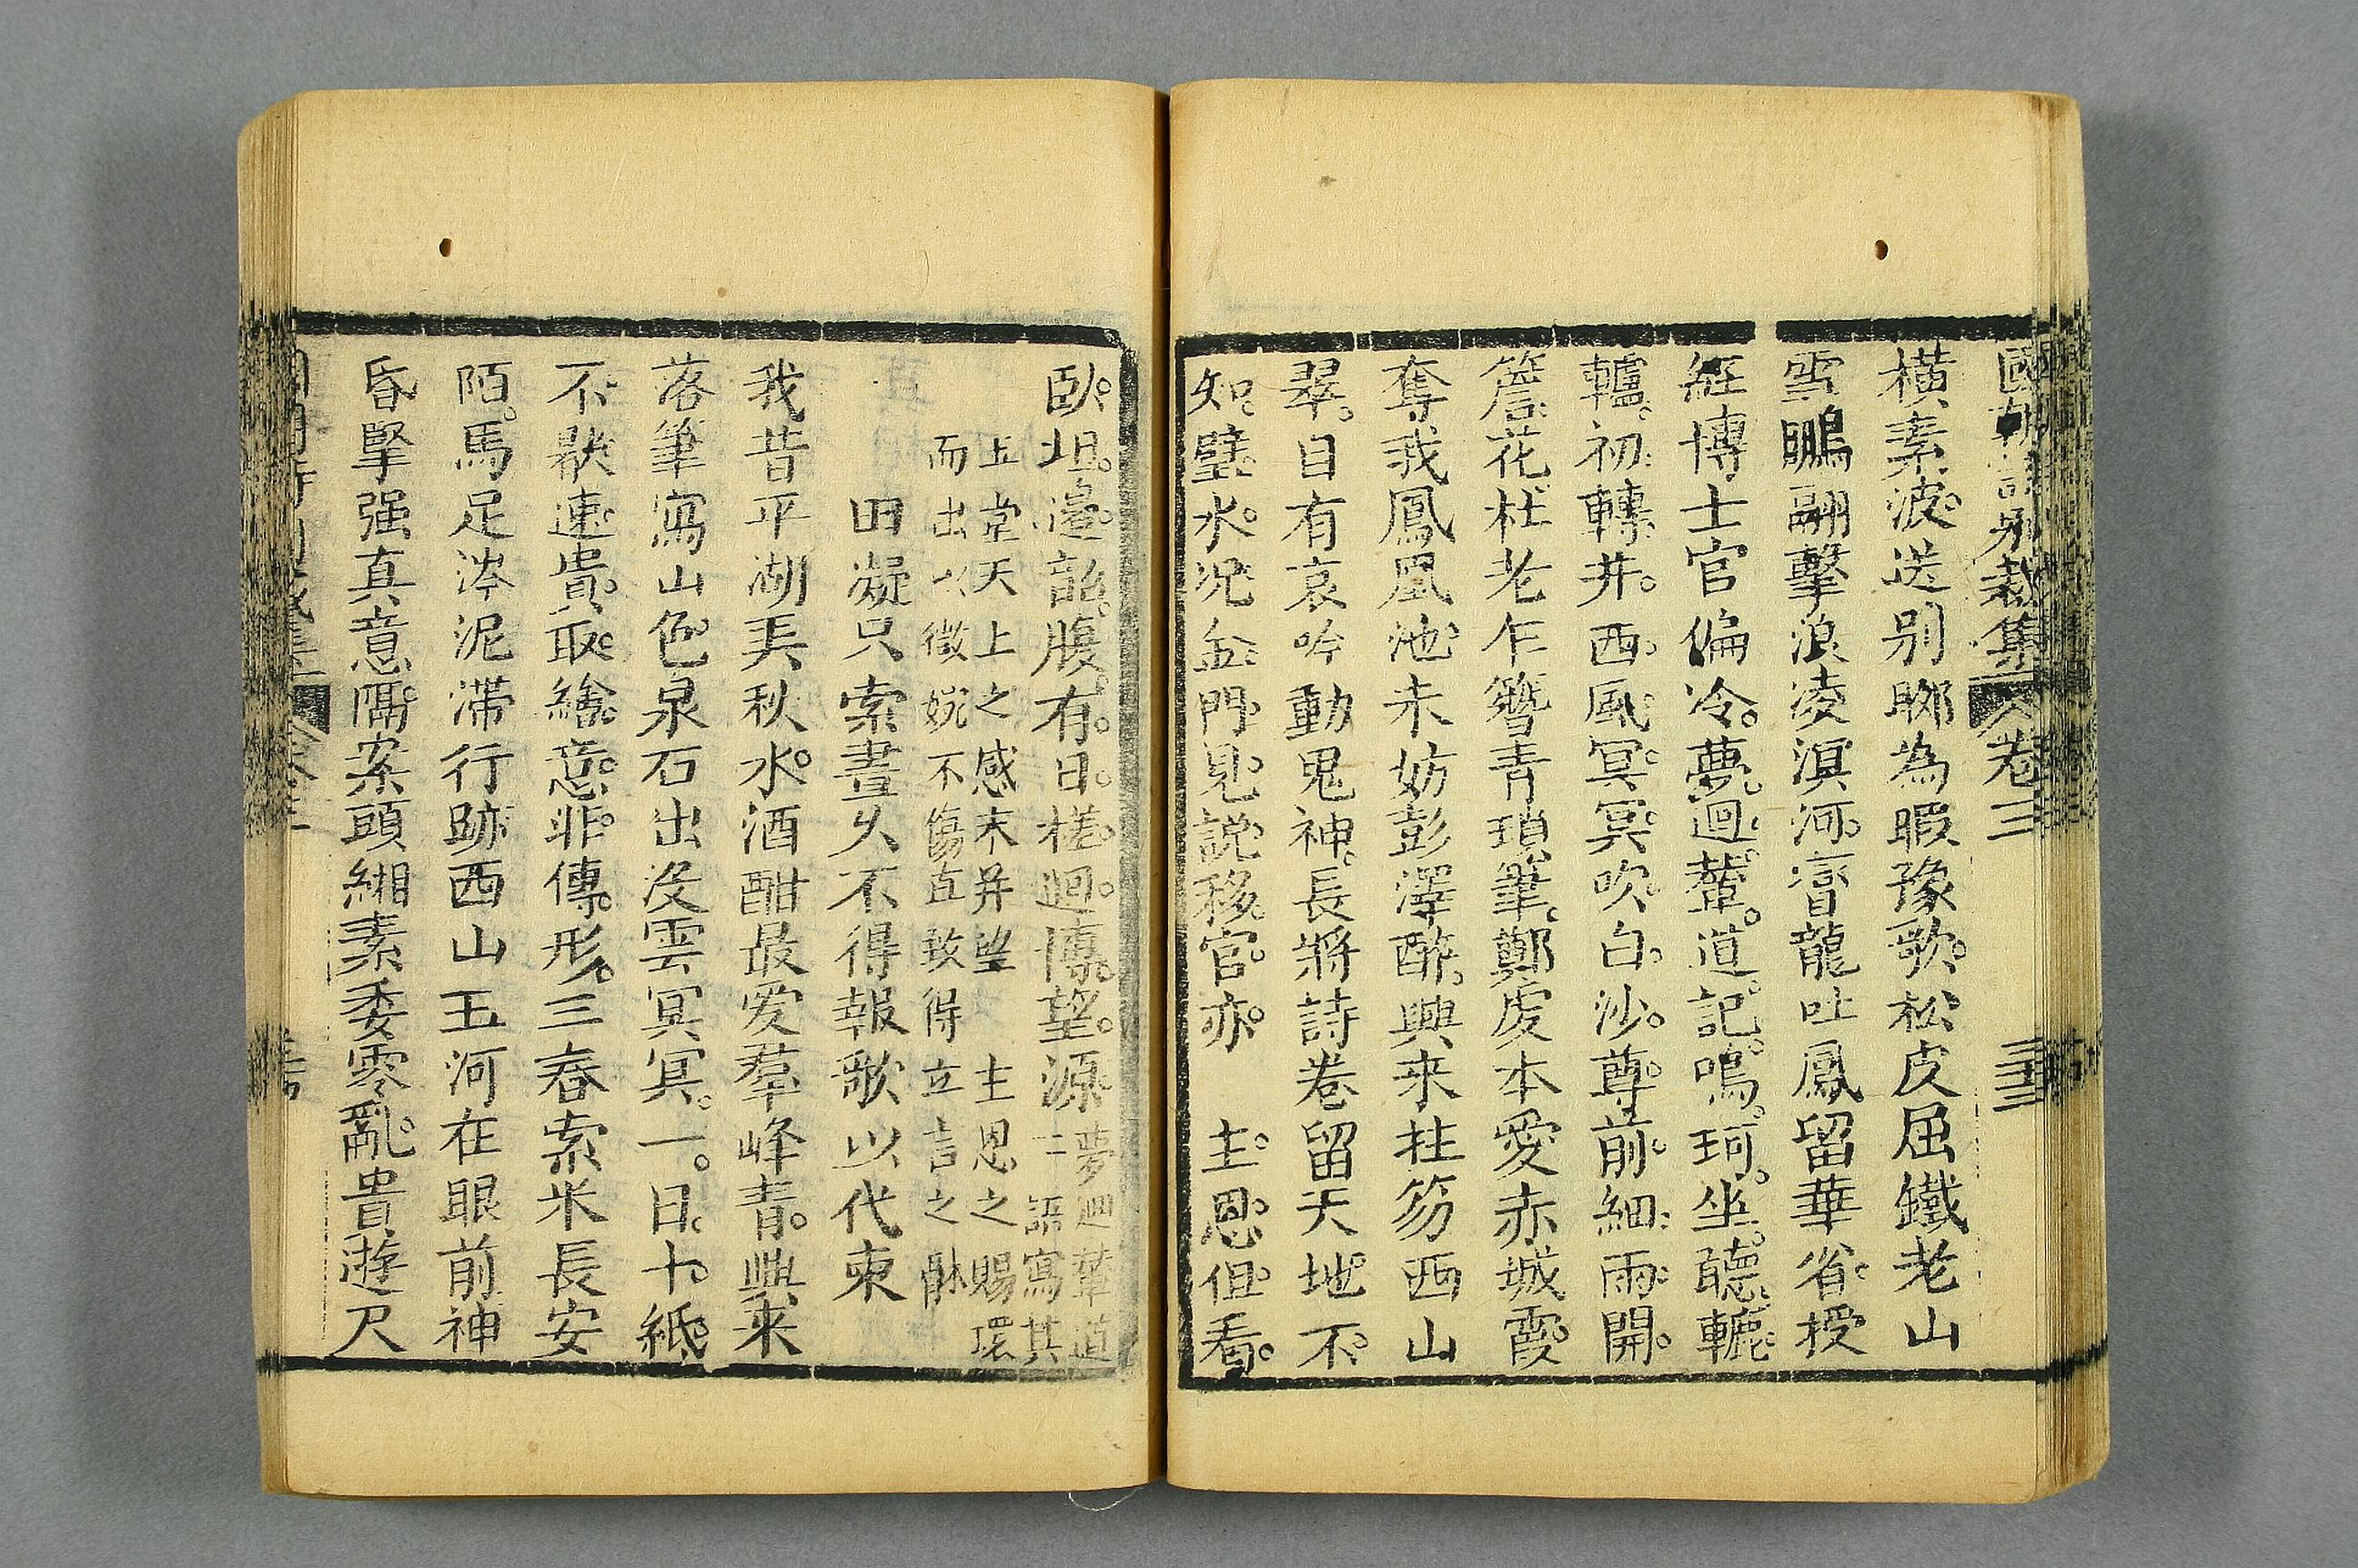 國朝詩別裁集 卷三
橫素波送別聊為暇豫歌松皮屈鐵老山
雪鵬翮擊浪凌溟河窅龍吐鳳留華省授
經博士官偏冷夢迴輦道記鳴珂坐聽轆
轤初轉井西風冥冥吹白沙尊前細雨開
簷花杜老乍簪青瑣筆鄭虔本愛赤城霞
奪我鳳凰池未妨彭澤醉興来拄笏西山
翠目有哀吟動鬼神長將詩卷留天地不
知璧水况金門見説移官亦 主恩但看
臥坦邉韶腹有日槎迴博望源
夢迴輦道
二語寫其
上堂天上之感末并望 主恩之賜環
而出以微婉不傷直致得立言之體
田凝只索畫久不得報歌以代柬
我昔平湖弄秋水酒酣最爱羣峰青興来
落筆寫山色泉石出没雲冥冥一日十紙
不歇速貴取繪意非傳形三春索米長安
陌馬足涔泥滯行跡西山玉河在眼前神
昏掔强真意隔案頭緗素委零亂貴遊尺